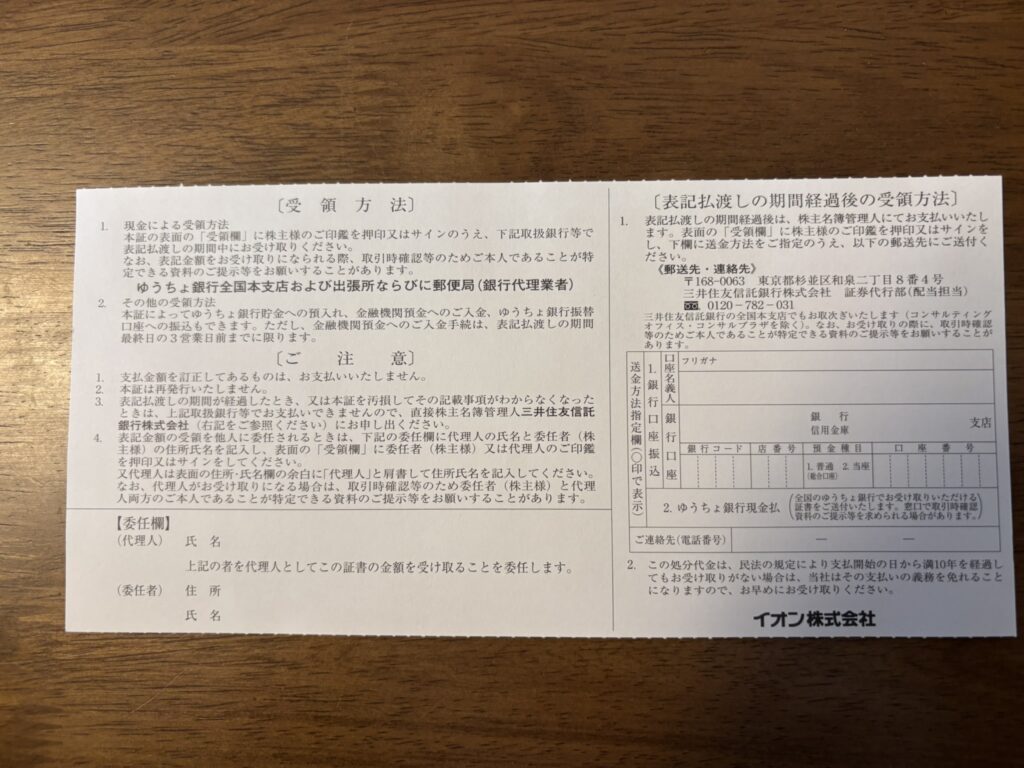 〔受領方法〕
1. 現金による受領方法
本証の表面の「受領欄」に株主様のご印鑑を押印又はサインのうえ、下記取扱銀行等で
表記払渡しの期間中にお受け取りください。
なお、表記金額をお受け取りになられる際、取引時確認等のためご本人であることが特
定できる資料のご提示等をお願いすることがあります。
ゆうちょ銀行全国本支店および出張所ならびに郵便局(銀行代理業者)
2. その他の受領方法
本証によってゆうちょ銀行貯金への預入れ、金融機関預金へのご入金、ゆうちょ銀行振替
口座への振込もできます。ただし、金融機関預金へのご入金手続は、表記払渡しの期間
最終日の3営業日前までに限ります。
〔ご注意〕
1. 支払金額を訂正してあるものは、お支払いいたしません。
2. 本証は再発行いたしません。
3. 表記払渡しの期間が経過したとき、又は本証を汚損してその記載事項がわからなくなった
ときは、上記取扱銀行等でお支払いできませんので、直接株主名簿管理人三井住友信託
銀行株式会社(右記をご参照ください)にお申し出ください。
4. 表記金額の受領を他人に委任されるときは、下記の委任欄に代理人の氏名と委任者(株
主様)の住所氏名を記入し、表面の「受領欄」に委任者(株主様)又は代理人のご印鑑
を押印又はサインをしてください。
又代理人は表面の住所・氏名欄の余白に「代理人」と肩書して住所氏名を記入してください。
なお、代理人がお受けになる場合は、取引時確認等のため委任者(株主様)と代理
人両方のご本人であることが特定できる資料のご提示等をお願いすることがあります。
【委任欄】
(代理人) 氏名
上記の者を代理人としてこの証書の金額を受け取ることを委任します。
(委任者) 住所
氏名
〔表記払渡しの期間経過後の受領方法〕
1. 表記払渡しの期間経過後は、株主名簿管理人にてお支払いいたし
ます。表面の「受領欄」に株主様のご印鑑を押印又はサインを
し、下欄に送金方法をご指定のうえ、以下の郵送先にご送付くだ
さい。
《郵送先・連絡先》
〒168-0063 東京都杉並区和泉二丁目8番4号
三井住友信託銀行株式会社 証券代行部(配当担当)
0120-782-031
三井住友信託銀行の全国本支店でもお取次ぎいたします(コンサルティング
オフィス・コンサルプラザを除く)。なお、お受け取りの際に、取引時確認
等のためご本人であることが特定できる資料のご提示等をお願いすることが
あります。
送金方法指定欄(○印で表示)
1.銀行口座振込
口座名義人
フリガナ
銀行口座
銀行
信用金庫
支店
銀行コード 店番号 預金種目 口座番号
1.普通 2.当座
(総合口座)
2. ゆうちょ銀行現金払
(全国のゆうちょ銀行でお受け取りいただける
証書をご送付いたします。窓口で取引時確認
資料のご提示等を求められる場合があります。)
ご連絡先(電話番号) ― ―
2. この処分代金は、民法の規定により支払開始の日から満10年を経過し
てもお受け取りがない場合は、当社はその支払いの義務を免れること
になりますので、お早めにお受け取りください。
イオン株式会社